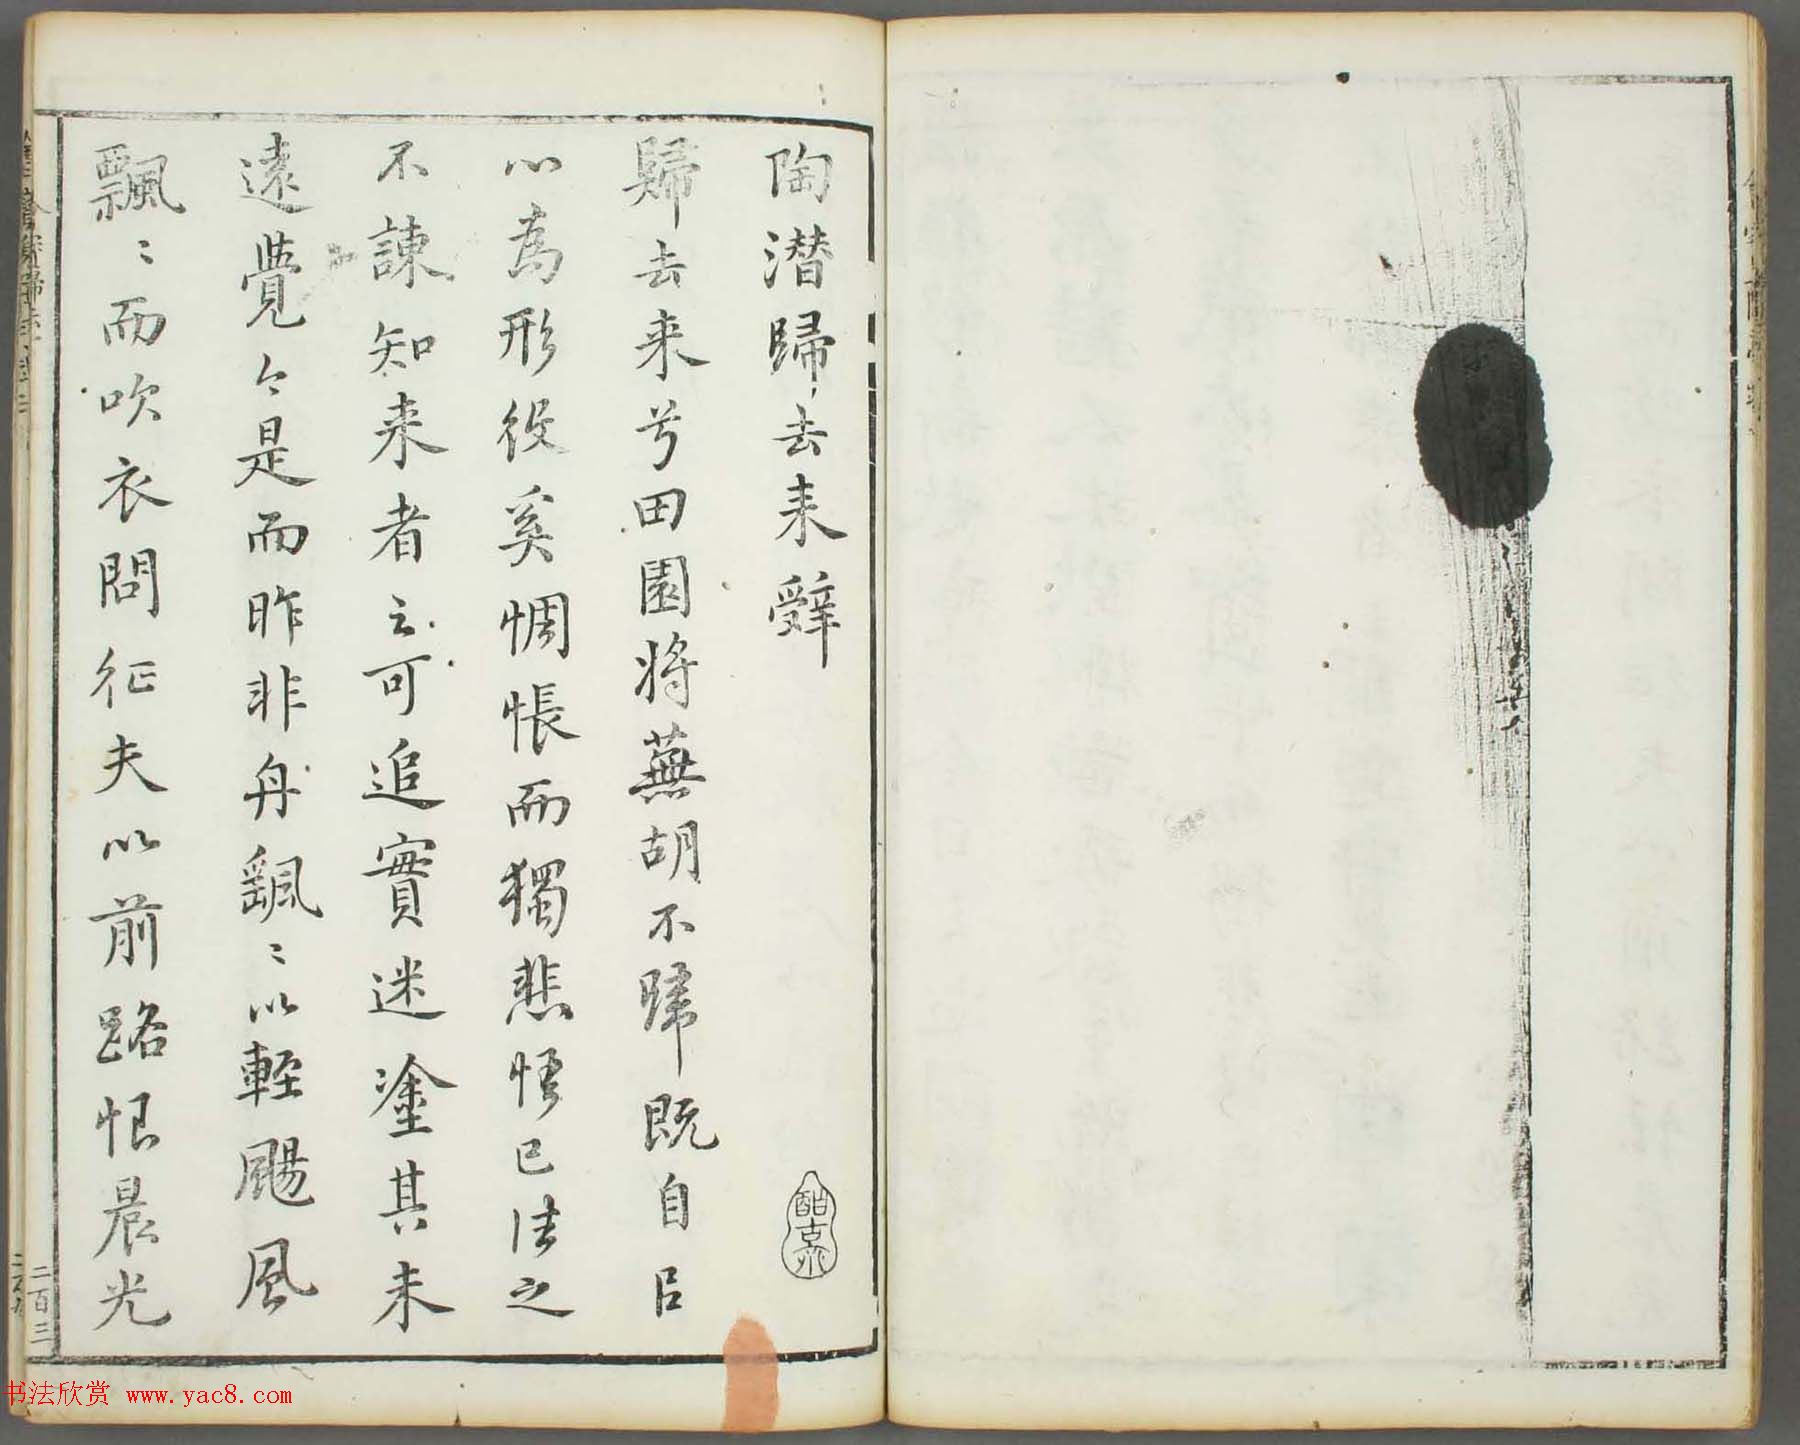 陶潛歸去来辤
歸去来兮田園将蕪胡不歸既自以
心為形役奚惆悵而獨悲悟已往之
不諫知来者之可追實迷塗其未
遠覺今是而昨非舟颻〻以輕颺風
飄〻而吹衣問征夫以前路恨晨光
二百三
书法欣赏 www.yac8.com